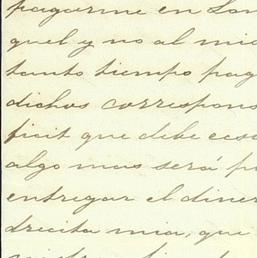 pagarme en Lon
quel y no al mio
tanto tiempo pag
dichos correspons
ficit que debe cesa
algo mas será p
entregar el diner
drecita mia, que